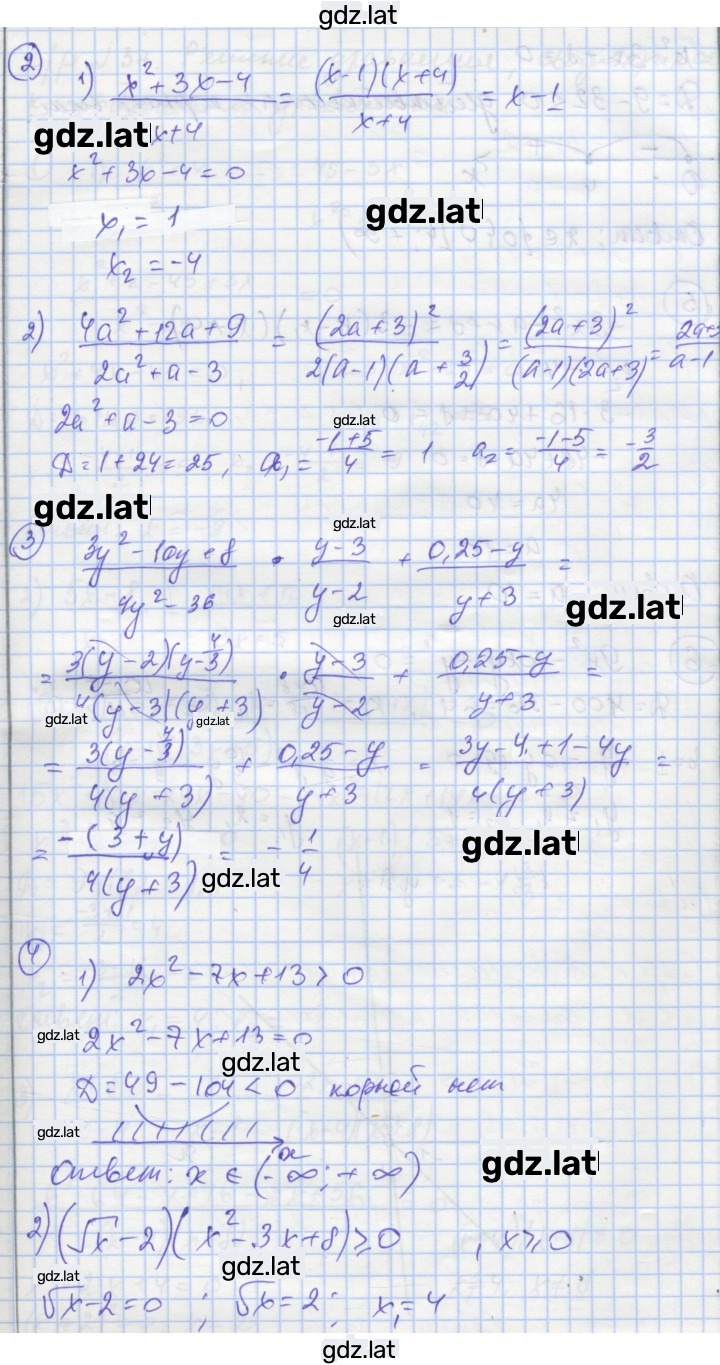 gdz.lat
② 1) (x² + 3x - 4)/(x+4) = ((x-1)(x+4))/(x+4) = x - 1
gdz.lat
x² + 3x - 4 = 0
gdz.lat
x₁ = 1
x₂ = -4
2) (4a² + 12a + 9)/(2a² + a - 3) = (2a+3)²/(2(a-1)(a + 3/2)) = (2a+3)²/((a-1)(2a+3)) = (2a+3)/(a-1)
2a² + a - 3 = 0
gdz.lat
D = 1 + 24 = 25, a₁ = (-1+5)/4 = 1 a₂ = (-1-5)/4 = -3/2
gdz.lat
gdz.lat
③ (3y² - 10y + 8)/(4y² - 36) · (y-3)/(y-2) + (0,25-y)/(y+3) =
gdz.lat
gdz.lat
gdz.lat
= (3(y-2)(y-4/3))/(4(y-3)(y+3)) · (y-3)/(y-2) + (0,25-y)/(y+3) =
gdz.lat
gdz.lat
= (3(y-4/3))/(4(y+3)) + (0,25-y)/(y+3) = (3y-4+1-4y)/(4(y+3)) =
= (-(3+y))/(4(y+3)) = -1/4
gdz.lat
gdz.lat
④ 1) 2x² - 7x + 13 > 0
gdz.lat
2x² - 7x + 13 = 0
gdz.lat
D = 49 - 104 < 0 корней нет
gdz.lat
x
gdz.lat
Ответ: x ∈ (-∞; +∞)
2) (√x - 2)(x² - 3x + 8) ≥ 0 , x ≥ 0
gdz.lat
gdz.lat
√x - 2 = 0 ; √x = 2 ; x₁ = 4
gdz.lat